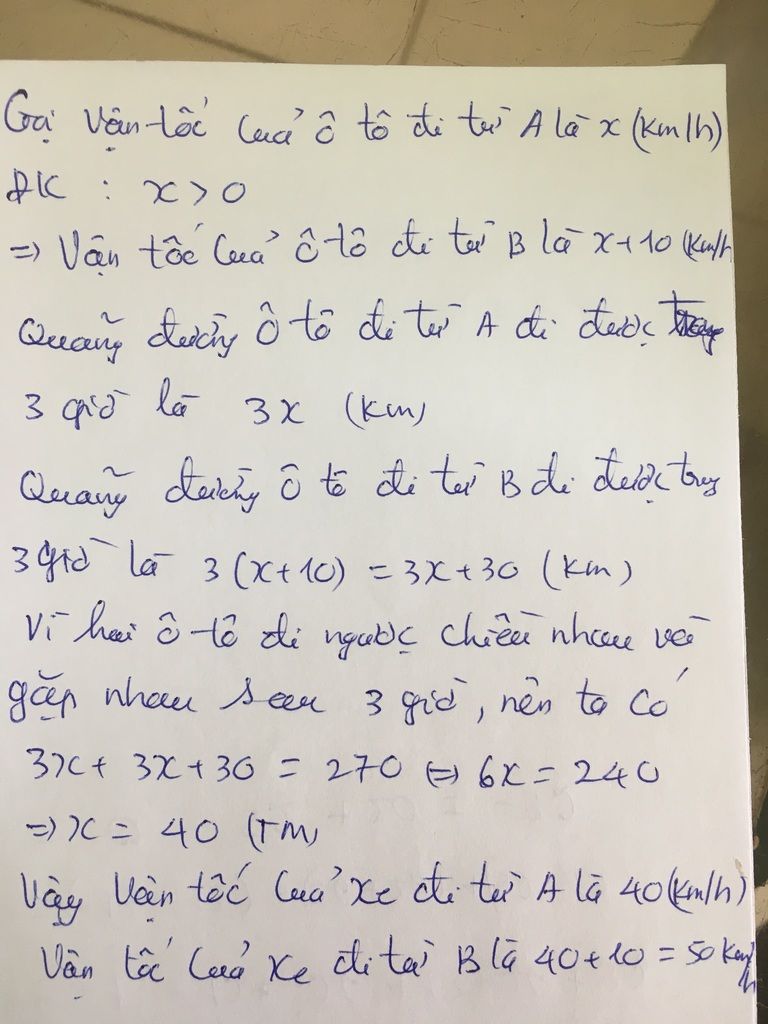 Gọi vận tốc của ô tô đi từ A là x (km/h)
ĐK : x > 0
=> Vận tốc của ô tô đi từ B là x+10 (km/h
Quãng đường ô tô đi từ A đi được trong
3 giờ là 3x (km)
Quãng đường ô tô đi từ B đi được trong
3 giờ là 3(x+10) = 3x+30 (km)
Vì hai ô tô đi ngược chiều nhau và
gặp nhau sau 3 giờ, nên ta có
3x + 3x + 30 = 270 <=> 6x = 240
=> x = 40 (TM)
Vậy vận tốc của xe đi từ A là 40 (km/h)
Vận tốc của xe đi từ B là 40+10 = 50 km/h